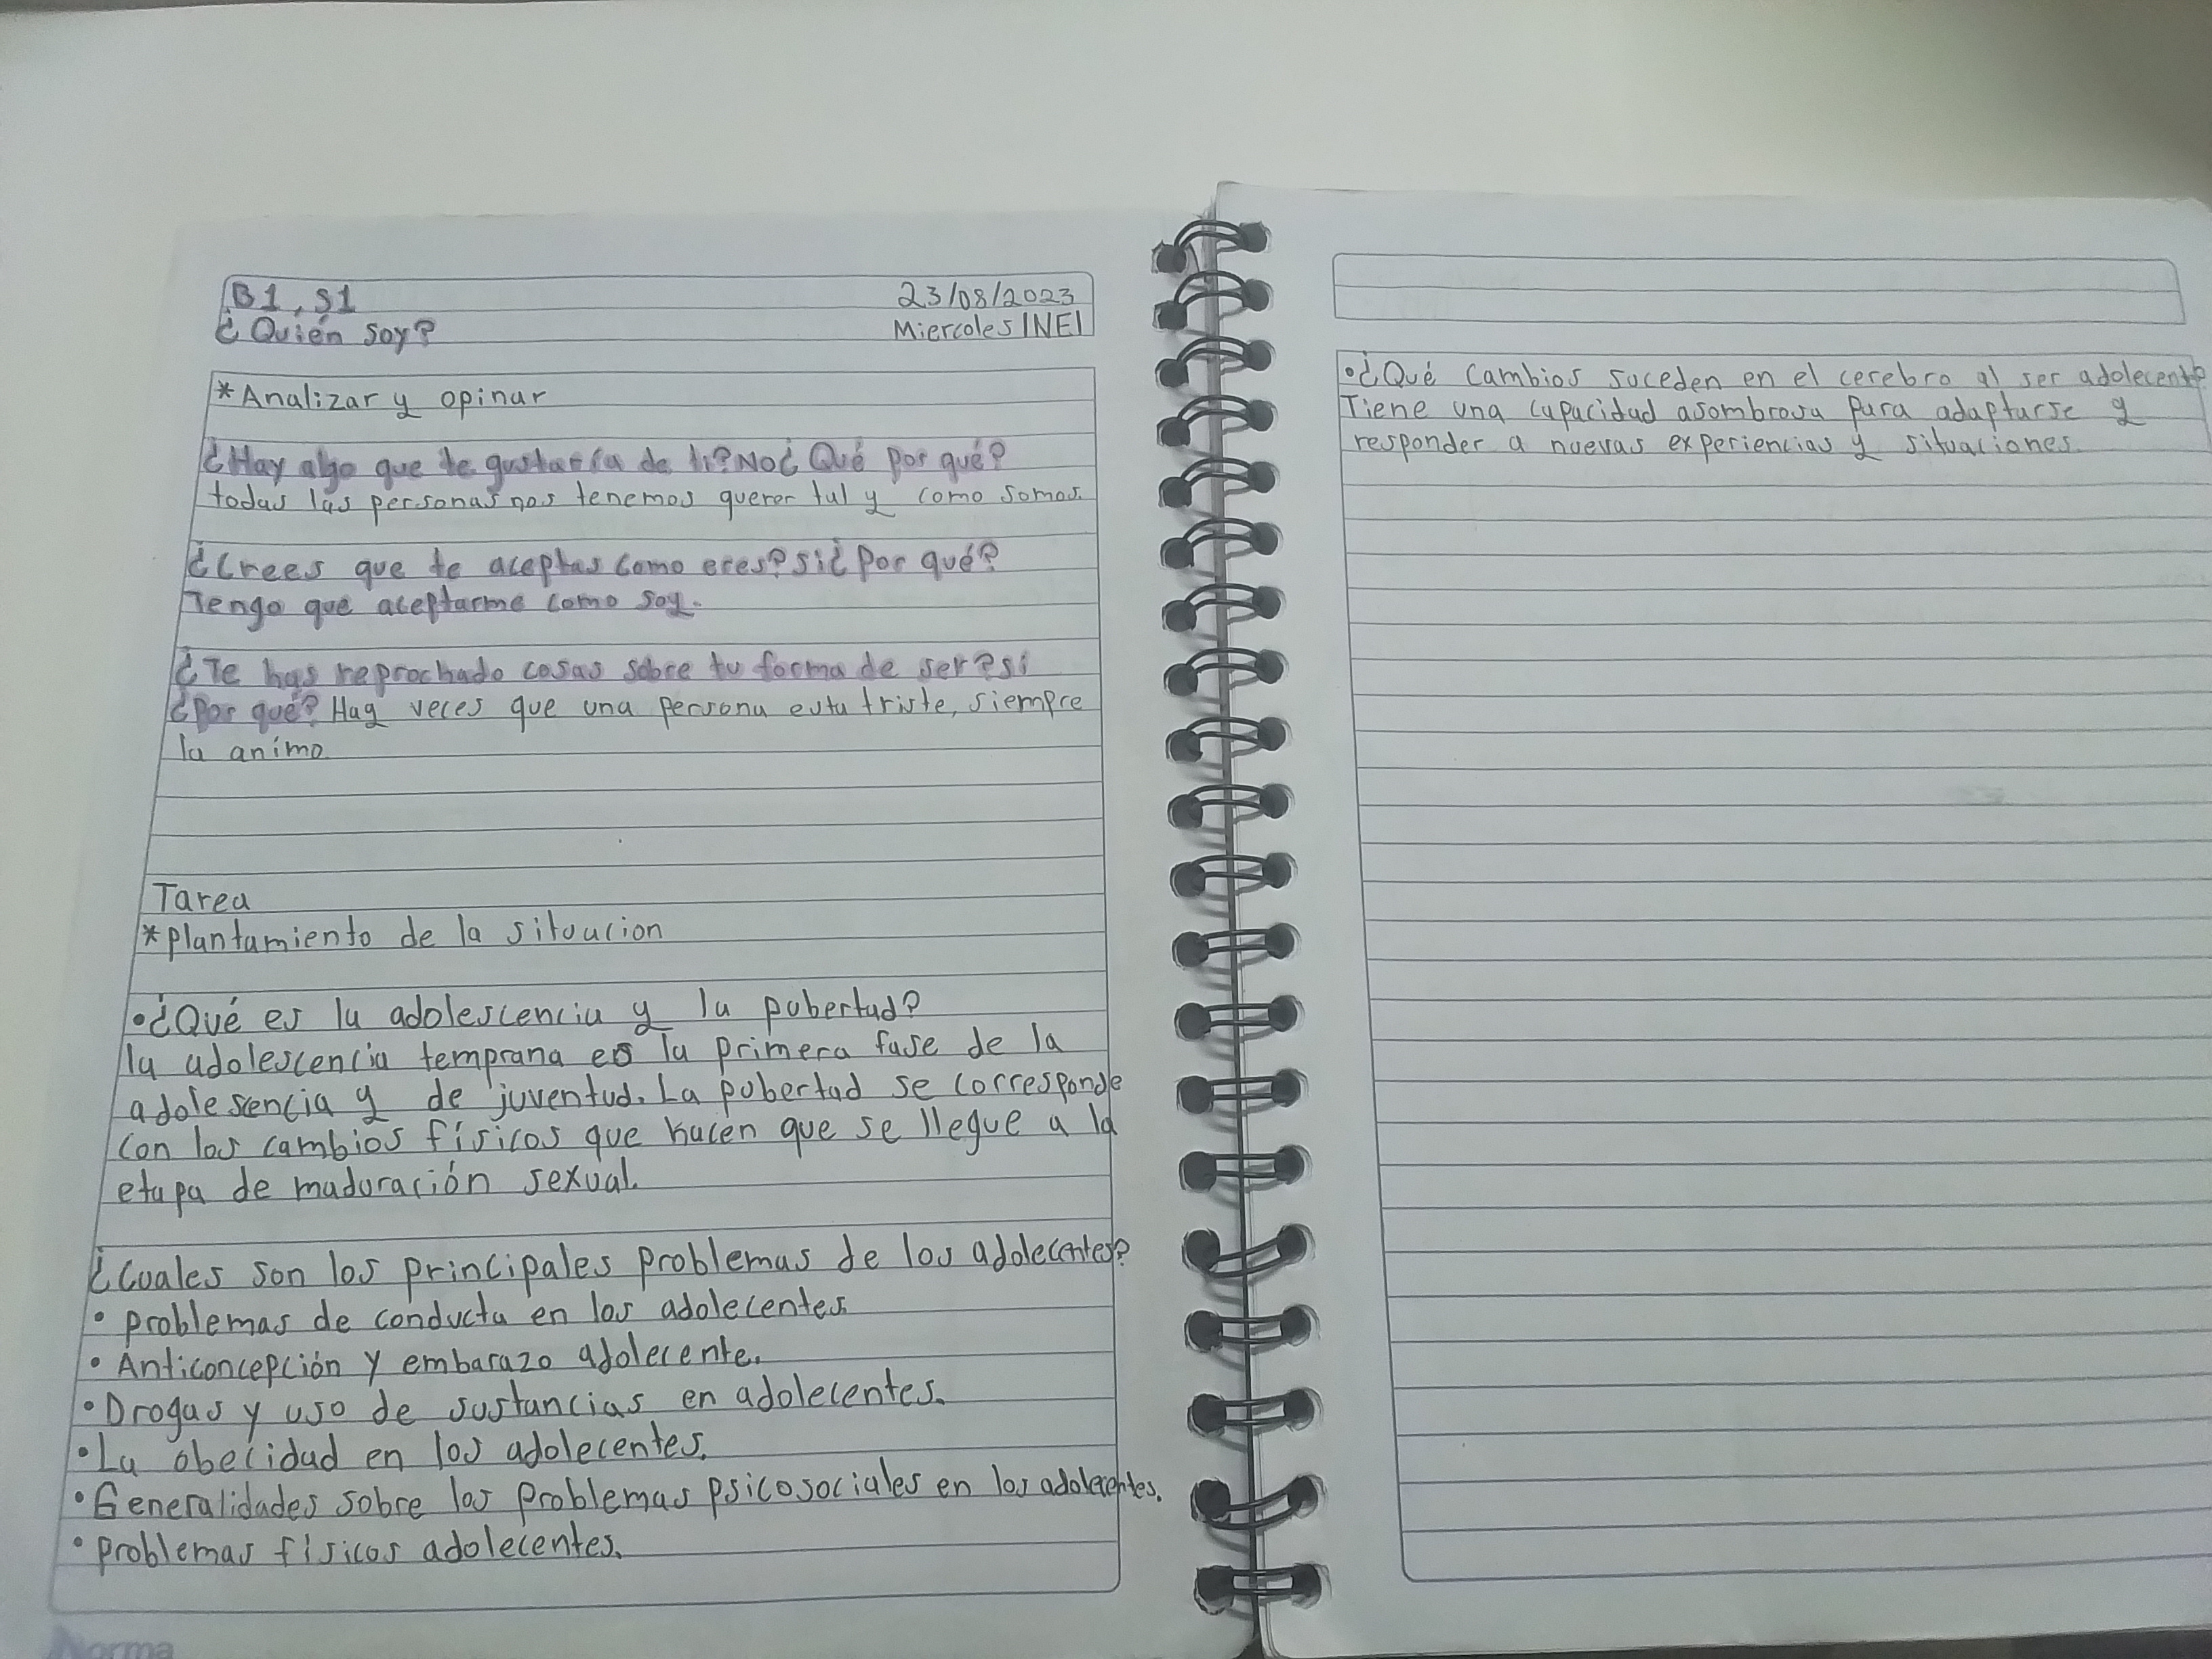 B1, S1
23/08/2023
¿Quién soy?
Miercoles INEI
*Analizar y opinar
¿Hay algo que te gustaría de ti? No ¿Qué por qué?
todas las personas nos tenemos querer tal y como somos.
¿Crees que te aceptas como eres? si ¿Por qué?
Tengo que aceptarme como soy.
¿Te has reprochado cosas sobre tu forma de ser? si
¿Por qué? Hay veces que una persona esta triste, siempre
la animo
Tarea
*Plantamiento de la situacion
•¿Qué es la adolescencia y la pubertad?
la adolescencia temprana es la primera fase de la
adolesencia y de juventud. La pubertad se corresponde
con los cambios físicos que hacen que se llegue a la
etapa de maduración sexual.
¿Cuales son los principales problemas de los adolecentes?
• problemas de conducta en los adolecentes.
• Anticoncepción y embarazo adolecente.
• Drogas y uso de sustancias en adolecentes.
• La obecidad en los adolecentes.
• Generalidades sobre los problemas psicosociales en los adolecentes.
• problemas físicos adolecentes.
Norma
•¿Qué cambios suceden en el cerebro al ser adolecente
Tiene una capacidad asombrosa para adaptarse y
responder a nuevas experiencias y situaciones.